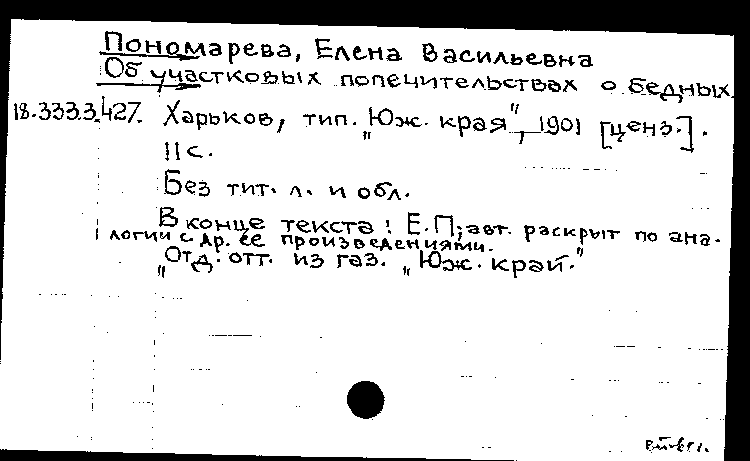 Пономарева, Елена Васильевна
Об участковых попечительствах о бедных.
18.333.3.427. Харьков, тип. "Юж. края", 1901 [ценз.].
11 с.
Без тит. л. и обл.
В конце текста: Е.П; авт. раскрыт по ана-
логии с др. ее произведениями.
"Отд. отт. из газ. "Юж. край."